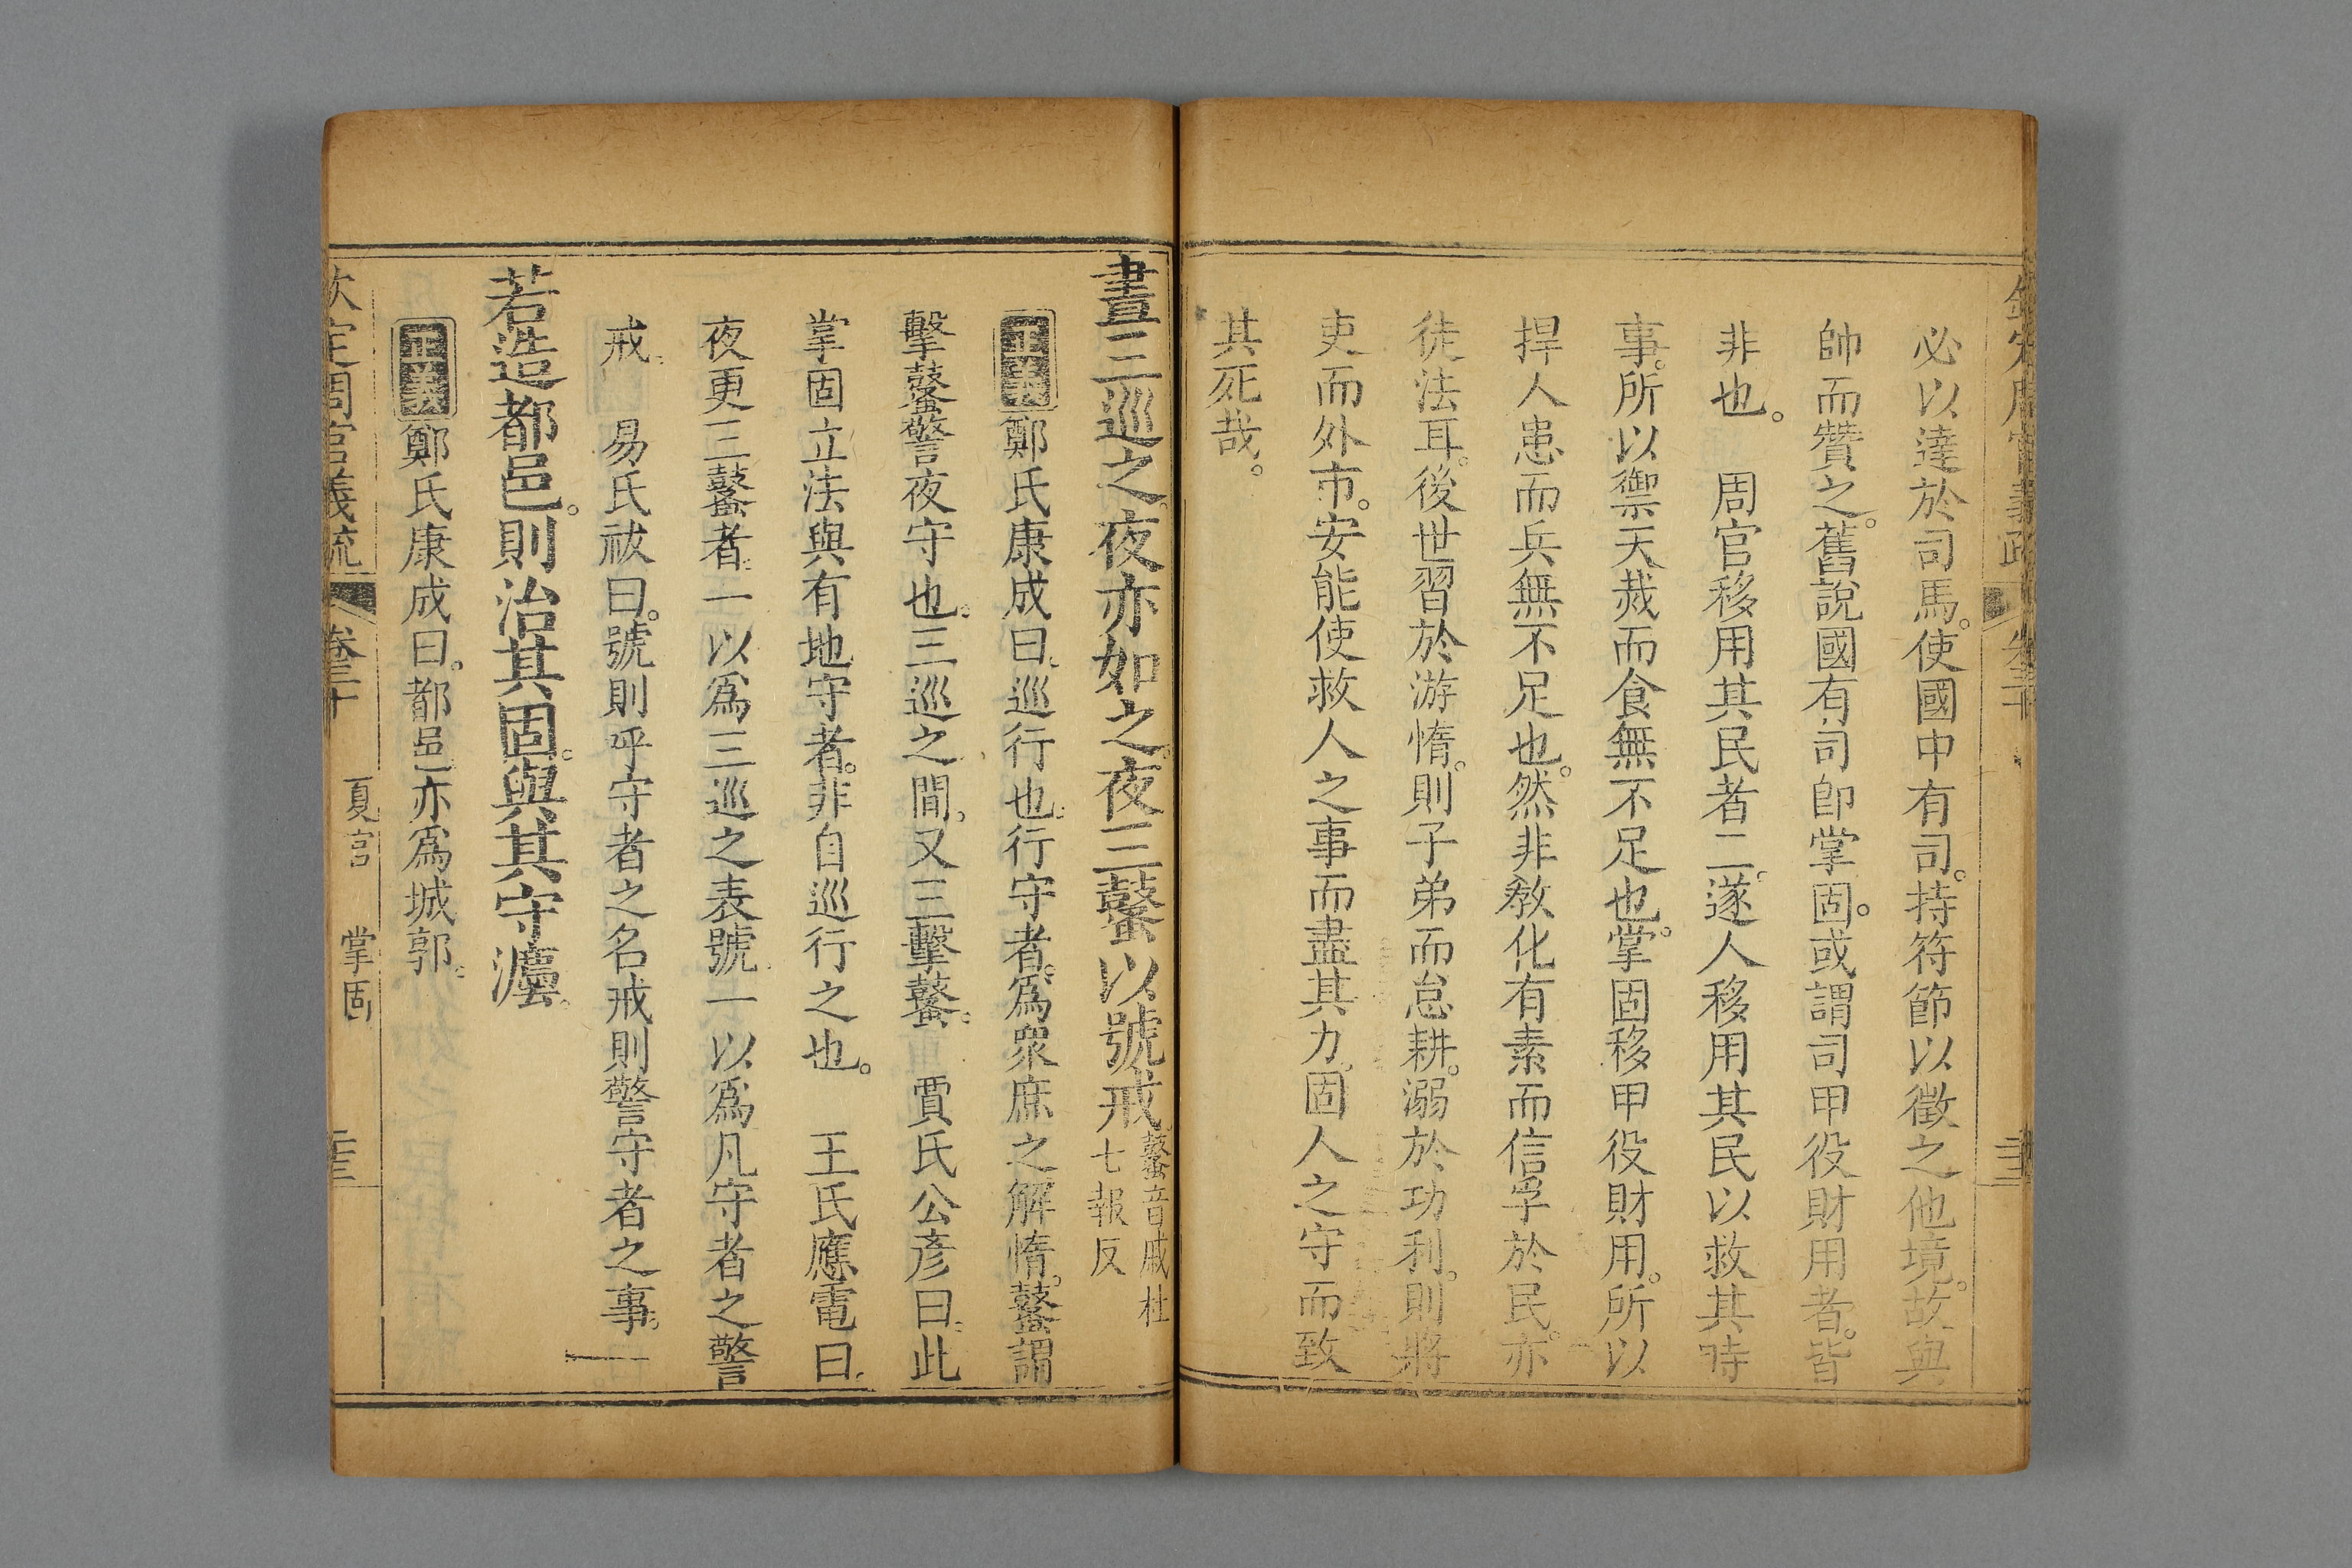 必以達於司馬。使國中有司。持符節以徵之他境。故與
帥而贊之。舊說國有司卽掌固。或謂司甲役財用者。皆
非也。　周官移用其民者二。遂人移用其民以救其時
事。所以禦天烖而食無不足也。掌固移甲役財用。所以
捍人患而兵無不足也。然非教化有素而信孚於民。亦
徒法耳。後世習於游惰。則子弟而怠耕。溺於功利。則將
吏而外市。安能使救人之事而盡其力。固人之守而致
其死哉。
晝三巡之。夜亦如之。夜三鼜以號戒
鼜音戚杜
七報反
正義鄭氏康成曰。巡行也。行守者。爲衆庶之解惰。鼜謂
擊鼜警夜守也。三巡之間。又三擊鼜。　賈氏公彥曰。此
掌固立法與有地守者。非自巡行之也。　王氏應電曰。
夜更三鼜者。一以爲三巡之表號。一以爲凡守者之警
戒。　易氏祓曰。號則呼守者之名。戒則警守者之事。
若造都邑。則治其固。與其守灋。
正義鄭氏康成曰。都邑亦爲城郭。
欽定周官義疏　卷三十　夏官　掌固　三三